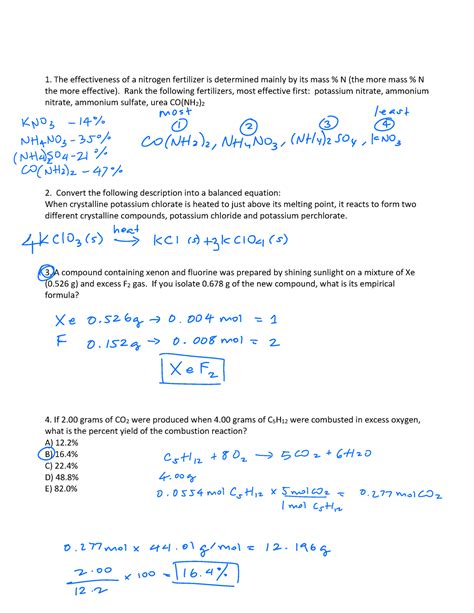 1. The effectiveness of a nitrogen fertilizer is determined mainly by its mass % N (the more mass % N
the more effective). Rank the following fertilizers, most effective first: potassium nitrate, ammonium
nitrate, ammonium sulfate, urea CO(NH2)2
most least
KNO3 - 14% 1 2 3 4
NH4NO3 - 35% CO(NH2)2, NH4NO3, (NH4)2SO4, KNO3
(NH4)2SO4 - 21%
CO(NH2)2 - 47%
2. Convert the following description into a balanced equation:
When crystalline potassium chlorate is heated to just above its melting point, it reacts to form two
different crystalline compounds, potassium chloride and potassium perchlorate.
heat
4KClO3(s) → KCl (s) + 3KClO4(s)
3. A compound containing xenon and fluorine was prepared by shining sunlight on a mixture of Xe
(0.526 g) and excess F2 gas. If you isolate 0.678 g of the new compound, what is its empirical
formula?
Xe 0.526g → 0.004 mol = 1
F 0.152g → 0.008 mol = 2
XeF2
4. If 2.00 grams of CO2 were produced when 4.00 grams of C5H12 were combusted in excess oxygen,
what is the percent yield of the combustion reaction?
A) 12.2%
B) 16.4%
C) 22.4%
D) 48.8%
E) 82.0%
C5H12 + 8O2 → 5CO2 + 6H2O
4.00g
0.0554 mol C5H12 x 5molCO2 = 0.277 molCO2
1 mol C5H12
0.277mol x 44.01g/mol = 12.196g
2.00 x 100 = 16.4%
12.2